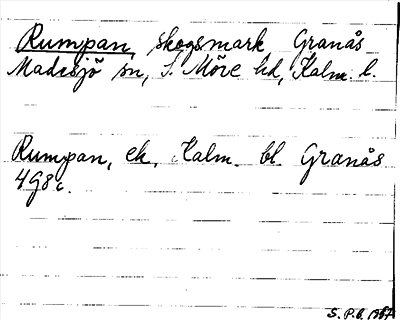 Rumpan, skogsmark Granås
Madesjö sn, S. Möre hd, Kalm. l.
Rumpan, ek, Kalm. bl. Granås
4 G 8 c.
S. P. b. 1967